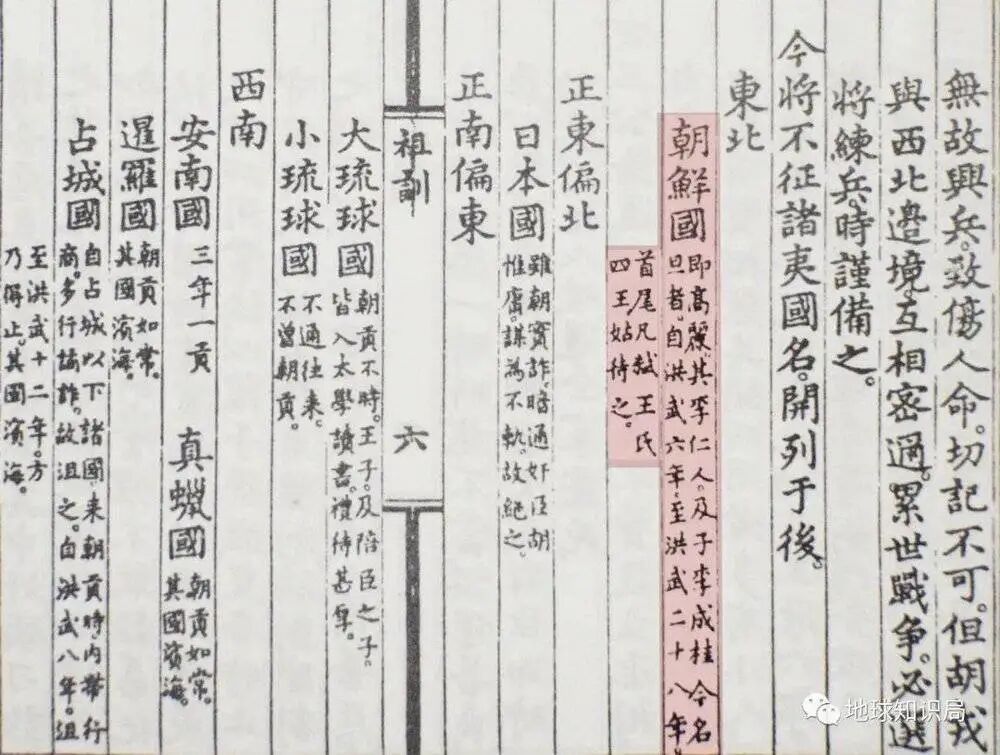 無故興兵。致傷人命。切記不可。但胡戎
與西北邊境。互相密邇。累世戰爭。必選
將練兵。時謹備之。
今將不征諸夷國名。開列于後。
東北
朝鮮國
即高麗。其李仁人。及子李成桂今名
旦者。自洪武六年。至洪武二十八年。
首尾凡弒王氏
四王。姑待之。
正東偏北
日本國
雖朝實詐。暗通奸臣胡
惟庸。謀為不軌。故絕之。
正南偏東
祖訓
六
大琉球國
朝貢不時。王子及陪臣之子。
皆入太學讀書。禮待甚厚。
小琉球國
不通往來。
不曾朝貢。
西南
安南國
三年一貢
真蠟國
朝貢如常。
其國濱海。
暹羅國
朝貢如常。
其國濱海。
占城國
自占城以下諸國。來朝貢時。內帶行
商。多行譎詐。故沮之。自洪武八年。沮
至洪武十二年。方
乃得止。其國濱海。
地球知识局